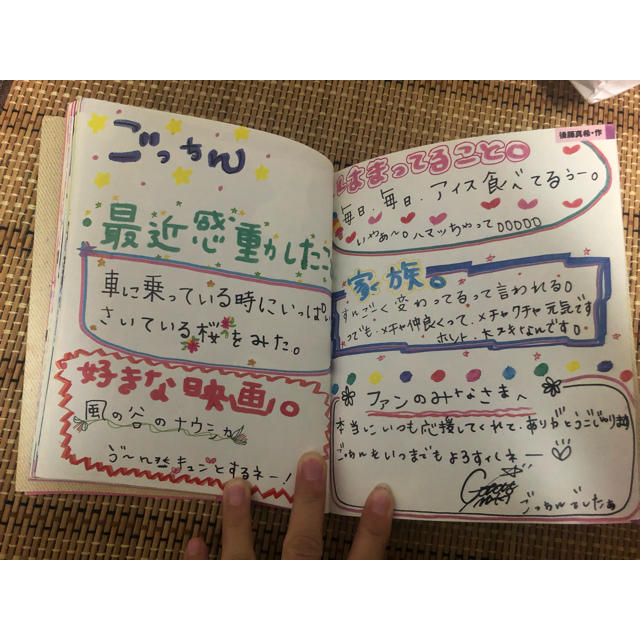 ごっちん
・最近感動したこ
車に乗っている時にいっぱい
さいている桜をみた。
好きな映画。
風の谷のナウシカ
う〜ん キュンとするネー!
後藤真希・作
はまってること。
毎日、毎日、アイス食べてるぅー。
いやぁ〜。ハマッちゃって00000
家族。
すんごく変わってるって言われる。
ってでも、メチャ仲良くって、メチャクチャ元気です
ホント、大スキなんです。
ファンのみなさまへ
本当にいつも応援してくれて、ありがとうございます
ごっちんをいつまでもよろすぃくネー
ごっちんでしたぁ